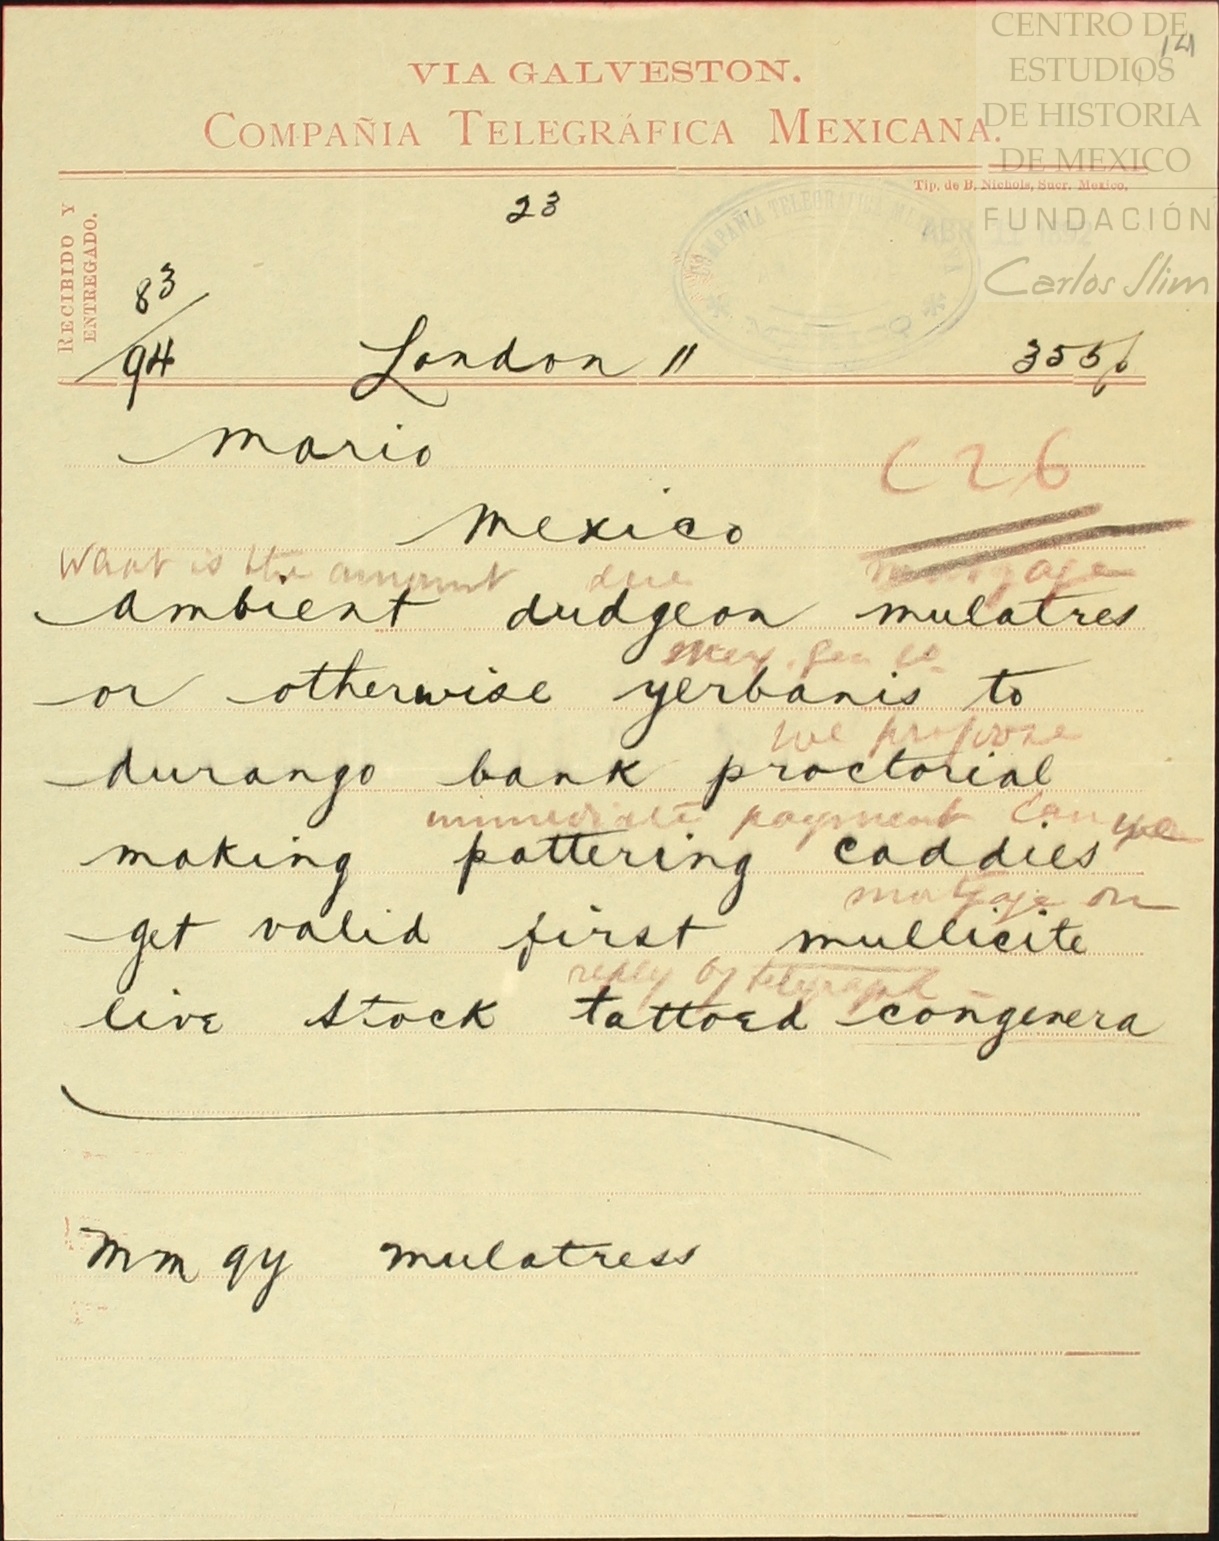 CENTRO DE
ESTUDIOS
DE HISTORIA
DE MEXICO
FUNDACIÓN
Carlos Slim
121
VIA GALVESTON.
COMPAÑIA TELEGRÁFICA MEXICANA.
Tip. de B. Nichols, Sucr. Mexico.
RECIBIDO Y
ENTREGADO.
COMPAÑIA TELEGRAFICA MEXICANA
ABR 11 1892
23
83/94 London 11 355p
Mario
C26
Mexico
What is the amount due mortgage
Ambient dudgeon mulatres
Mex. Gen Co
or otherwise yerbanis to
we propose
durango bank proctorial
immediate payment Can we
making pattering caddies
mortgage on
get valid first mullicite
reply by telegraph
live stock tattoed congenera
Mm qy mulatress